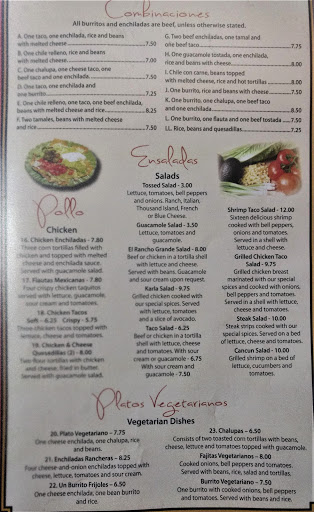 Combinaciones
All burritos and enchiladas are beef, unless otherwise stated.
A. One taco, one enchilada, rice and beans
with melted cheese 7.50
B. One chile relleno, rice and beans
with melted cheese 7.00
C. One chalupa, one cheese taco, one
beef taco and one enchilada 7.50
D. One taco, one enchilada and
one burrito 7.25
E. One chile relleno, one taco, one beef enchilada,
beans with melted cheese and rice 8.25
F. Two tamales, beans with melted cheese
and rice 7.50
G. Two beef enchiladas, one tamal and
one beef taco 7.75
H. One guacamole tostada, one enchilada,
rice and beans with cheese 8.00
I. Chile con carne, beans topped
with melted cheese, rice and hot tortillas 8.00
J. One burrito, rice and beans with cheese 7.50
K. One burrito, one chalupa, one beef taco
and one enchilada 8.50
L. One burrito, one flauta and one beef tostada 7.50
LL. Rice, beans and quesadillas 7.25
Pollo
Chicken
16. Chicken Enchiladas - 7.80
Three corn tortillas filled with
chicken and topped with melted
cheese and enchilada sauce.
Served with guacamole salad.
17. Flautas Mexicanas - 7.80
Four crispy chicken taquitos
served with lettuce, guacamole,
sour cream and tomatoes.
18. Chicken Tacos
Soft - 6.25 Crispy - 5.75
Three chicken tacos topped with
lettuce, cheese and tomatoes.
19. Chicken & Cheese
Quesadillas (2) - 8.00
Two flour tortillas with chicken
and cheese, fried in butter.
Served with guacamole salad.
Ensaladas
Salads
Tossed Salad - 3.00
Lettuce, tomatoes, bell peppers
and onions. Ranch, Italian,
Thousand Island, French
or Blue Cheese.
Guacamole Salad - 3.50
Lettuce, tomatoes and
guacamole.
El Rancho Grande Salad - 8.00
Beef or chicken in a tortilla
shell with lettuce and cheese.
Served with beans. Guacamole
and sour cream upon request.
Karla Salad - 9.75
Grilled chicken cooked with
our special spices. Served
with lettuce, tomatoes
and a slice of avocado.
Taco Salad - 6.25
Beef or chicken in a tortilla
shell with lettuce, cheese
and tomatoes. With sour
cream or guacamole - 6.75
With sour cream and
guacamole - 7.50
Shrimp Taco Salad - 12.00
Sixteen delicious shrimp
cooked with bell peppers,
onions and tomatoes.
Served in a shell with lettuce
and cheese.
Grilled Chicken Taco
Salad - 9.75
Grilled chicken breast
marinated with our special
spices and cooked with onions,
bell peppers and tomatoes.
Served in a shell with lettuce,
cheese and tomatoes.
Steak Salad - 10.00
Steak strips cooked with our
special spices. Served on a bed
of lettuce, cheese, onions, bell
peppers and tomatoes.
Cancun Salad - 10.00
Grilled shrimp on a bed of
lettuce, cucumbers and
tomatoes.
Platos Vegetarianos
Vegetarian Dishes
20. Plato Vegetariano - 7.75
One cheese enchilada, one chalupa, rice and
beans.
21. Enchiladas Rancheras - 8.25
Four cheese-and-onion enchiladas topped with
cheese, lettuce, tomatoes and sour cream.
22. Un Burrito Frijoles - 6.50
One cheese enchilada, one bean burrito
and rice.
23. Chalupas - 6.50
Consists of two toasted corn tortillas with beans,
cheese, lettuce and tomatoes topped with guacamole.
Fajitas Vegetarianos - 8.00
Cooked onions, bell peppers and tomatoes.
Served with beans, rice, salad and tortillas.
Burrito Vegetariano - 7.50
One burrito with cooked onions, bell peppers and
tomatoes. Served with beans and rice.